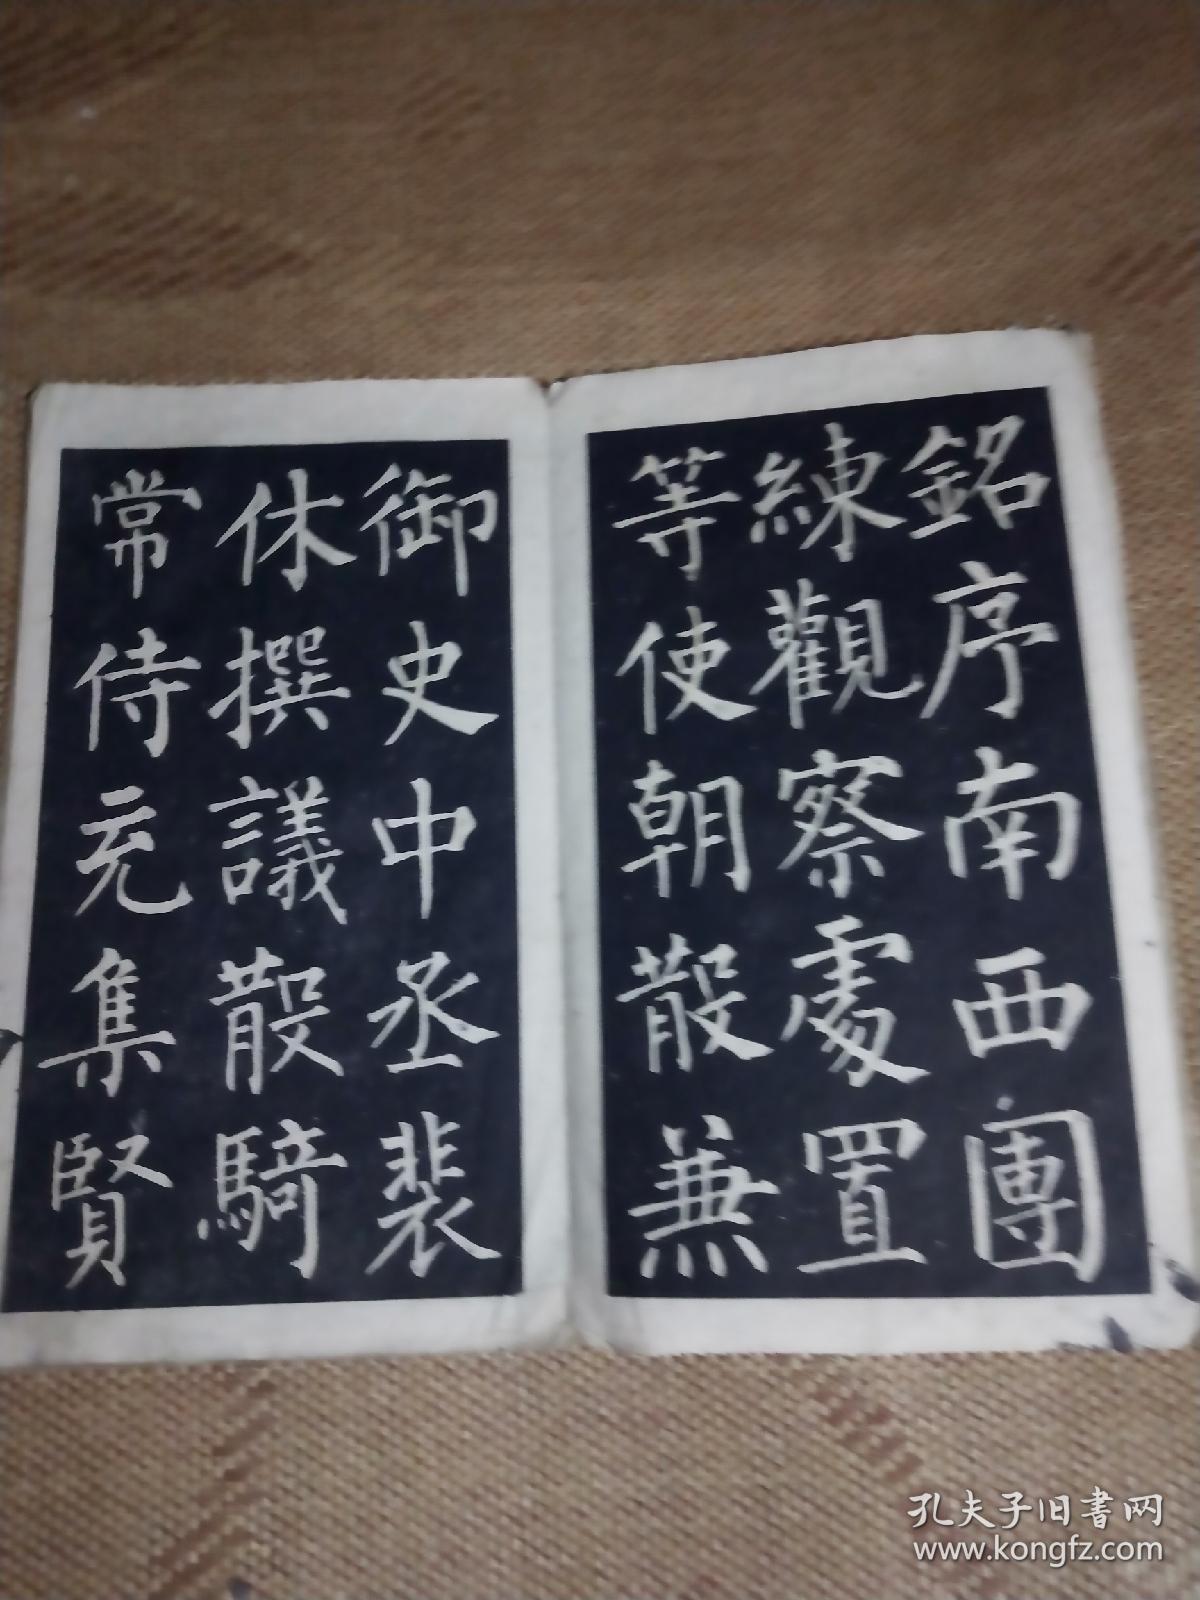 銘序南西團
練觀察處置
等使朝散兼
御史中丞裴
休撰議散騎
常侍充集賢
孔夫子旧書网
www.kongfz.com